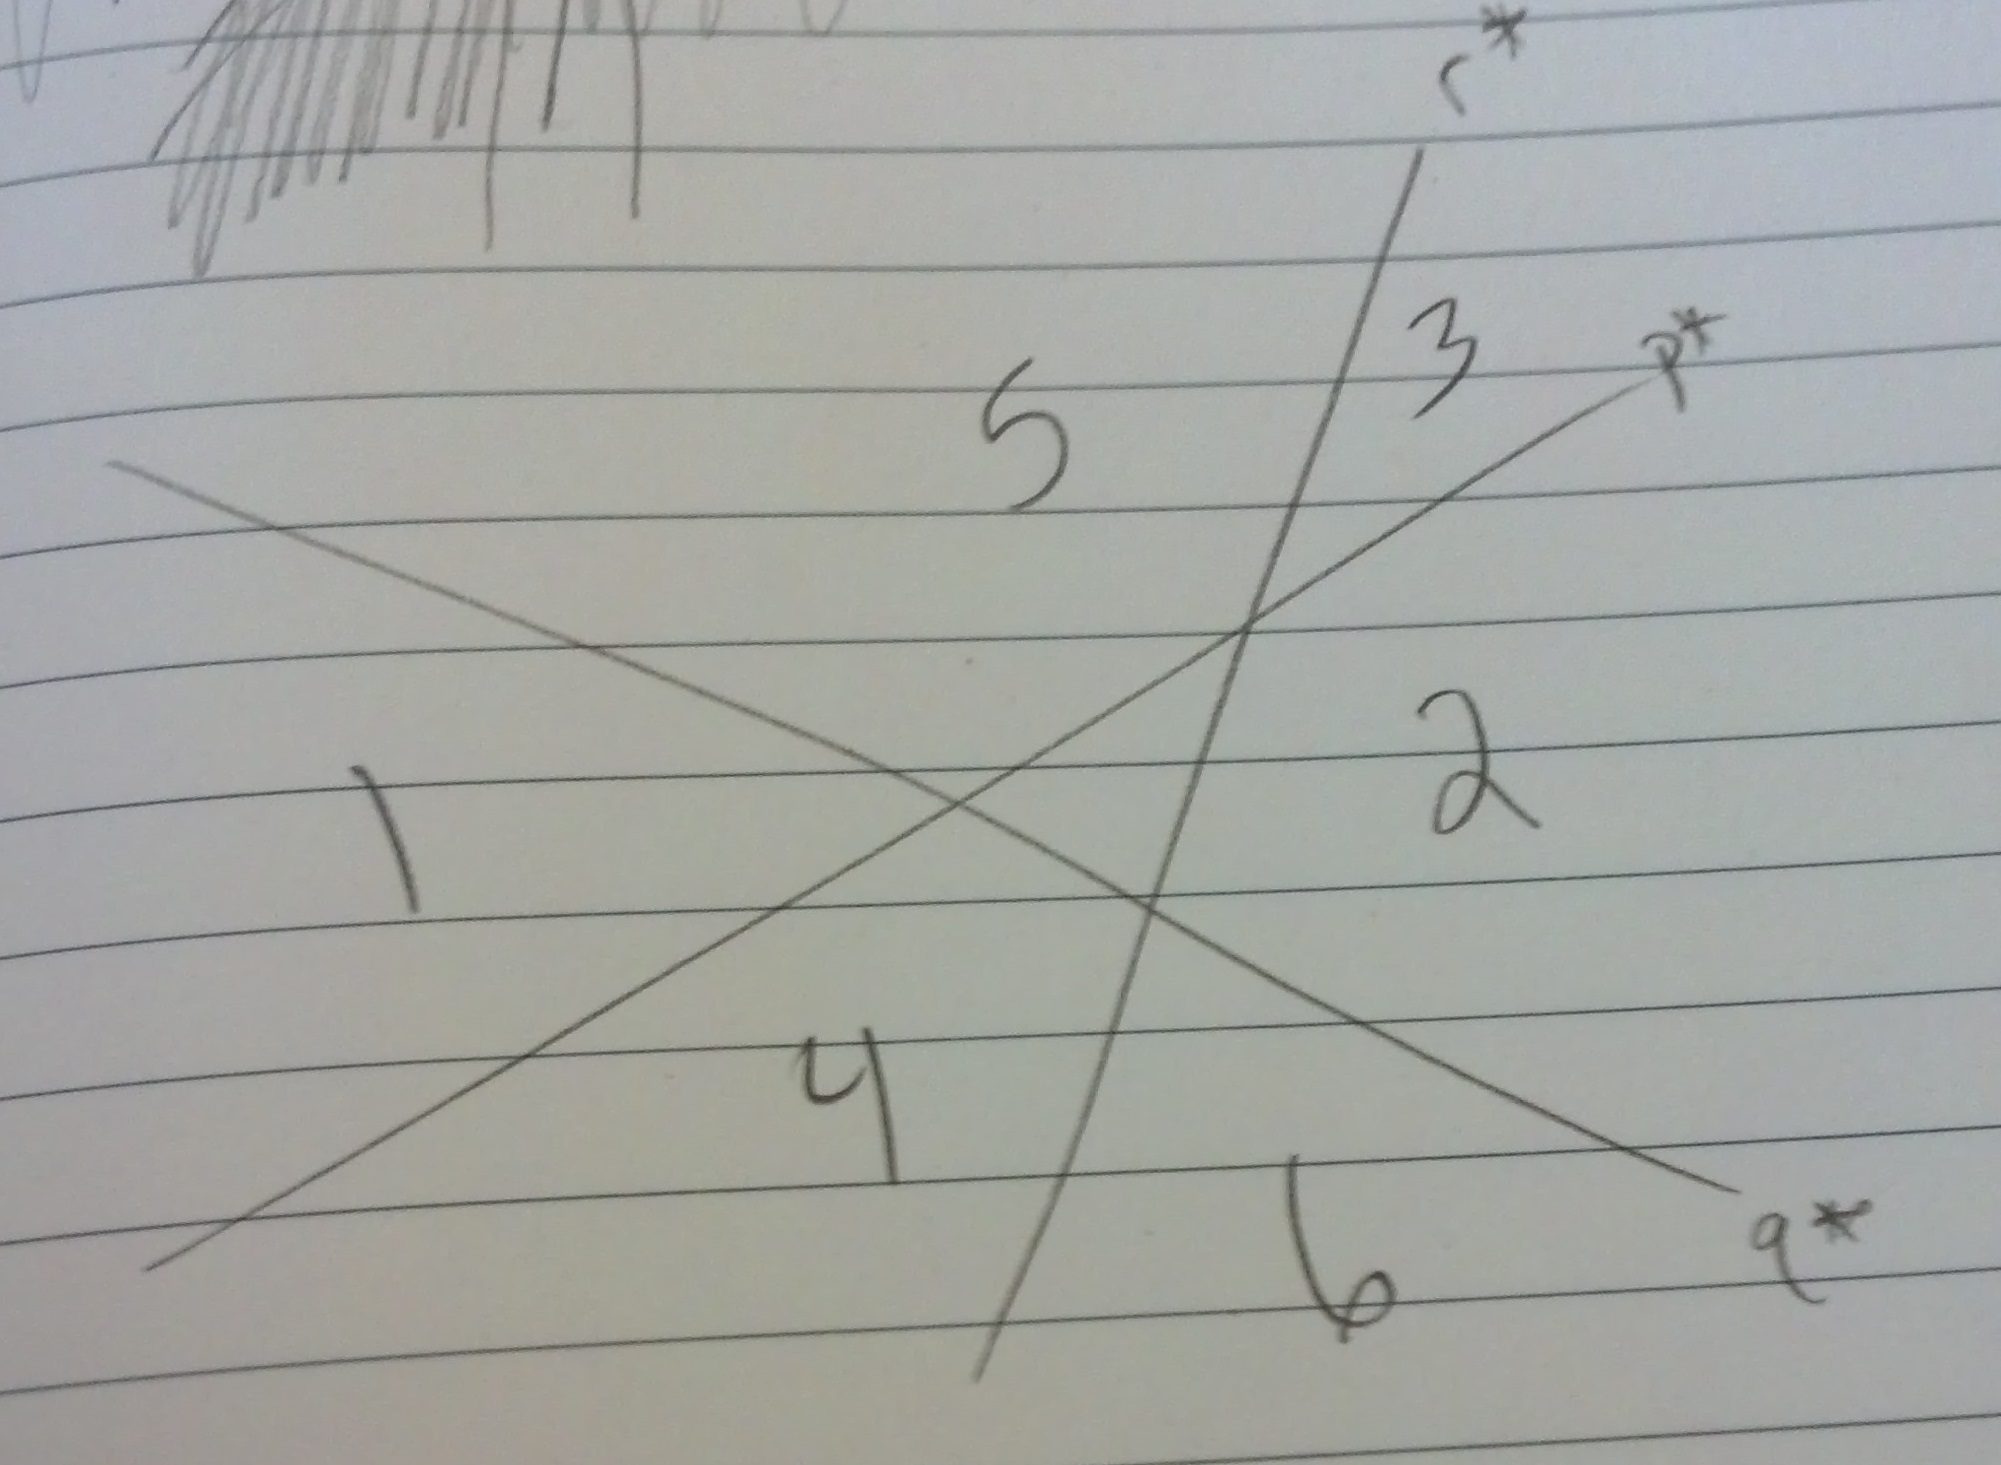 r*
3
p*
5
2
1
4
6
q*